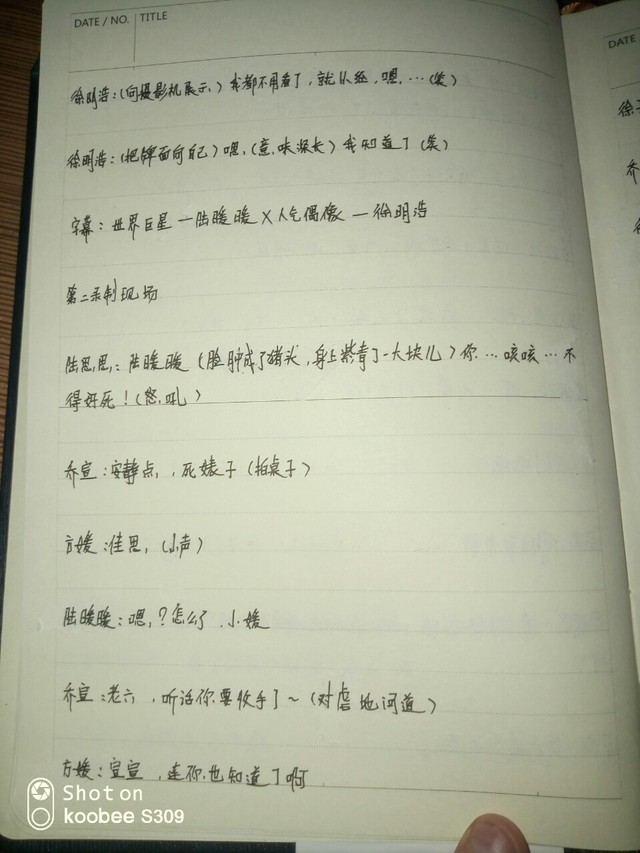 DATE / NO. TITLE
DATE
徐明浩：(向摄影机展示) 我都不用看了，就从丝，嗯，…(笑)
徐明浩：(把牌面向自己) 嗯，(意味深长) 我知道了 (笑)
字幕：世界巨星 — 陆暖暖 X 人气偶像 — 徐明浩
第二录制现场
陆思思：陆暖暖 (脸肿成了猪头，身上紫青了一大块儿) 你…咳咳…不
得好死！(怒吼)
乔宣：安静点，死婊子 (拍桌子)
方媛：佳思，(小声)
陆暖暖：嗯，？怎么了，小媛
乔宣：老六，听话你要收手了～ (对虐地问道)
方媛：宣宣，连你也知道了啊
Shot on
koobee S309